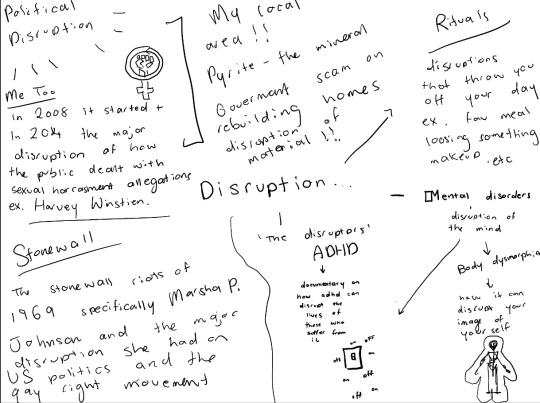 Political
Disruption
Me Too
In 2008 it started +
In the major
disruption of how
the public dealt with
sexual harrasment allegations
ex. Harvey Winstien.
My local
area !!
Pyrite - the mineral
scam on
Goverment homes
rebuilding of
disruption
material !!
Rituals
disruptions
that throw you
off your day
ex. meal
loosing something
makeup . etc
Disruption...
Stonewall
The stonewall riots of
1969 specifically Marsha P.
Johnson and the major
disruption she had on
US politics and the
gay right movement
'The disruptors'
ADHD
documentary on
how adhd can
disrupt the
lives of
those who
suffer from
it
on OFF
on
off on
off on
Mental disorders
disruption of
the mind
Body dysmorphia
how it can
disrupt your
image of
yourself